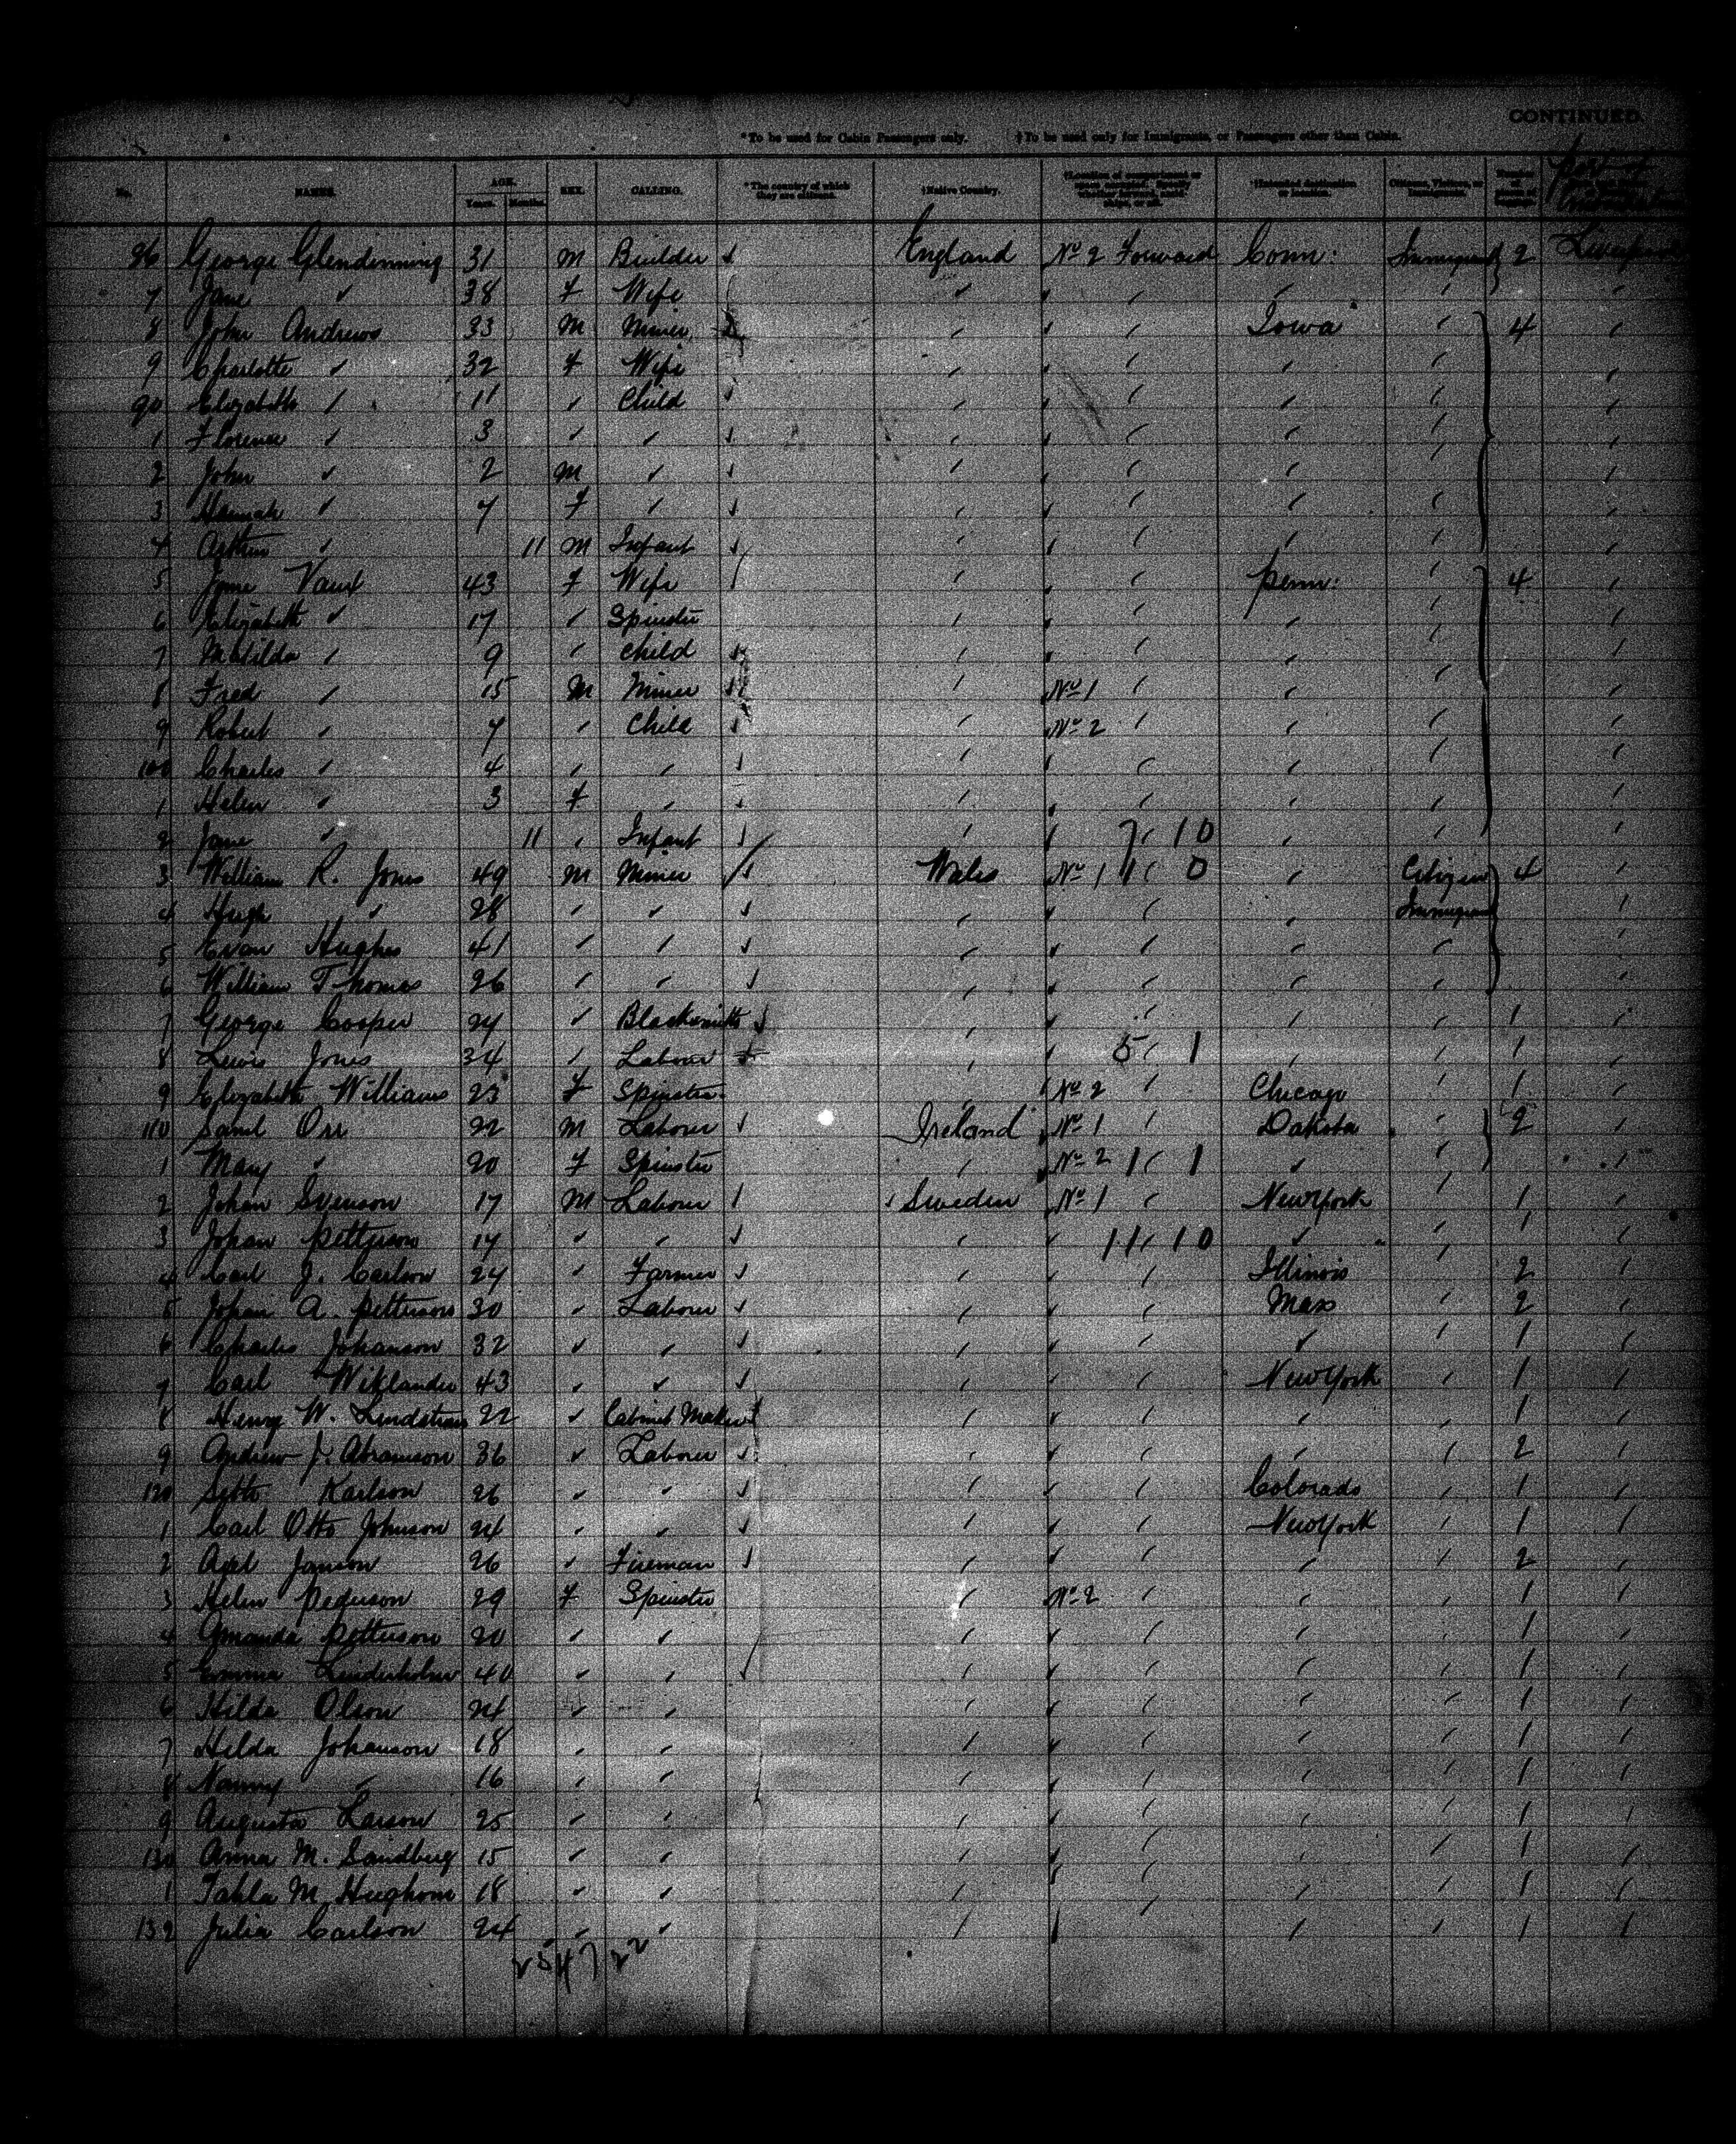 CONTINUED.
*To be used for Cabin Passengers only. †To be used only for Immigrants, or Passengers other than Cabin.
No. NAMES. AGE. Years. Months. SEX. CALLING. *The country of which they are citizens. †Native Country. †Intended destination or location.
86 George Glendinning 31 M Builder England No 2 Forward Conn: Immigrant 2 Liverpool
7 Jane " 38 F Wife " " " " " "
8 John Andrews 33 M Miner " " " Iowa " 4 "
9 Charlotte " 32 F Wife " " " " " "
90 Elizabeth " 11 " Child " " " " " "
1 Florence " 3 " " " " " " " "
2 John " 2 M " " " " " " "
3 Hannah " 7 F " " " " " " "
4 Arthur " 11 M Infant " " " " " "
5 Jane Vaux 43 F Wife " " " Penn: " 4 "
6 Elizabeth " 17 " Spinster " " " " " "
7 Matilda " 9 " Child " " " " " "
8 Fred " 15 M Miner " No 1 " " " "
9 Robert " 7 " Child " No 2 " " " "
100 Charles " 4 " " " " " " " "
1 Helen " 3 F " " " " " " "
2 Jane " 11 " Infant " " 7 " 10 " " "
3 William R. Jones 49 M Miner Wales No 1 11 " 0 " Citizen 4 "
4 Hugh " 28 " " " " " " Immigrant "
5 Evan Hughes 41 " " " " " " " "
6 William Thomas 26 " " " " " " " "
7 George Cooper 24 " Blacksmith " " " " " 1 "
8 Lewis Jones 34 " Labourer " " 5 " 1 " " 1 "
9 Elizabeth Williams 23 F Spinster " No 2 " Chicago " 1 "
110 Saml Orr 22 M Labourer Ireland No 1 " Dakota " 2 "
1 Mary " 20 F Spinster " No 2 1 " 1 " " "
2 Johan Svenson 17 M Labourer Sweden No 1 " New York " 1 "
3 Johan Petterson 17 " " " " 11 " 10 " " 1 "
4 Carl J. Carlson 24 " Farmer " " " Illinois " 2 "
5 Johan A. Petterson 30 " Labourer " " " Mass " 2 "
6 Charles Johanson 32 " " " " " " " 1 "
7 Carl Wiklander 43 " " " " " New York " 1 "
8 Henry W. Lindstrom 22 " Cabinet Maker " " " " " 1 "
9 Andrew J. Abramson 36 " Labourer " " " " " 2 "
120 Karlson 26 " " " " " Colorado " 1 "
1 Carl Otto Johnson 24 " " " " " New York " 1 "
2 Axel Janson 26 " Fireman " " " " " 2 "
3 Helen Pederson 29 F Spinster " No 2 " " " 1 "
4 Amanda Petterson 20 " " " " " " " 1 "
5 Emma Linderholm 40 " " " " " " " 1 "
6 Hilda Olson 24 " " " " " " " 1 "
7 Hilda Johanson 18 " " " " " " " 1 "
8 Nanny " 16 " " " " " " " 1 "
9 Augusta Larson 25 " " " " " " " 1 "
130 Anna M. Sandberg 15 " " " " " " " 1 "
1 M. 18 " " " " " " " 1 "
132 Julia Carlson 24 " " " " " " " 1 "